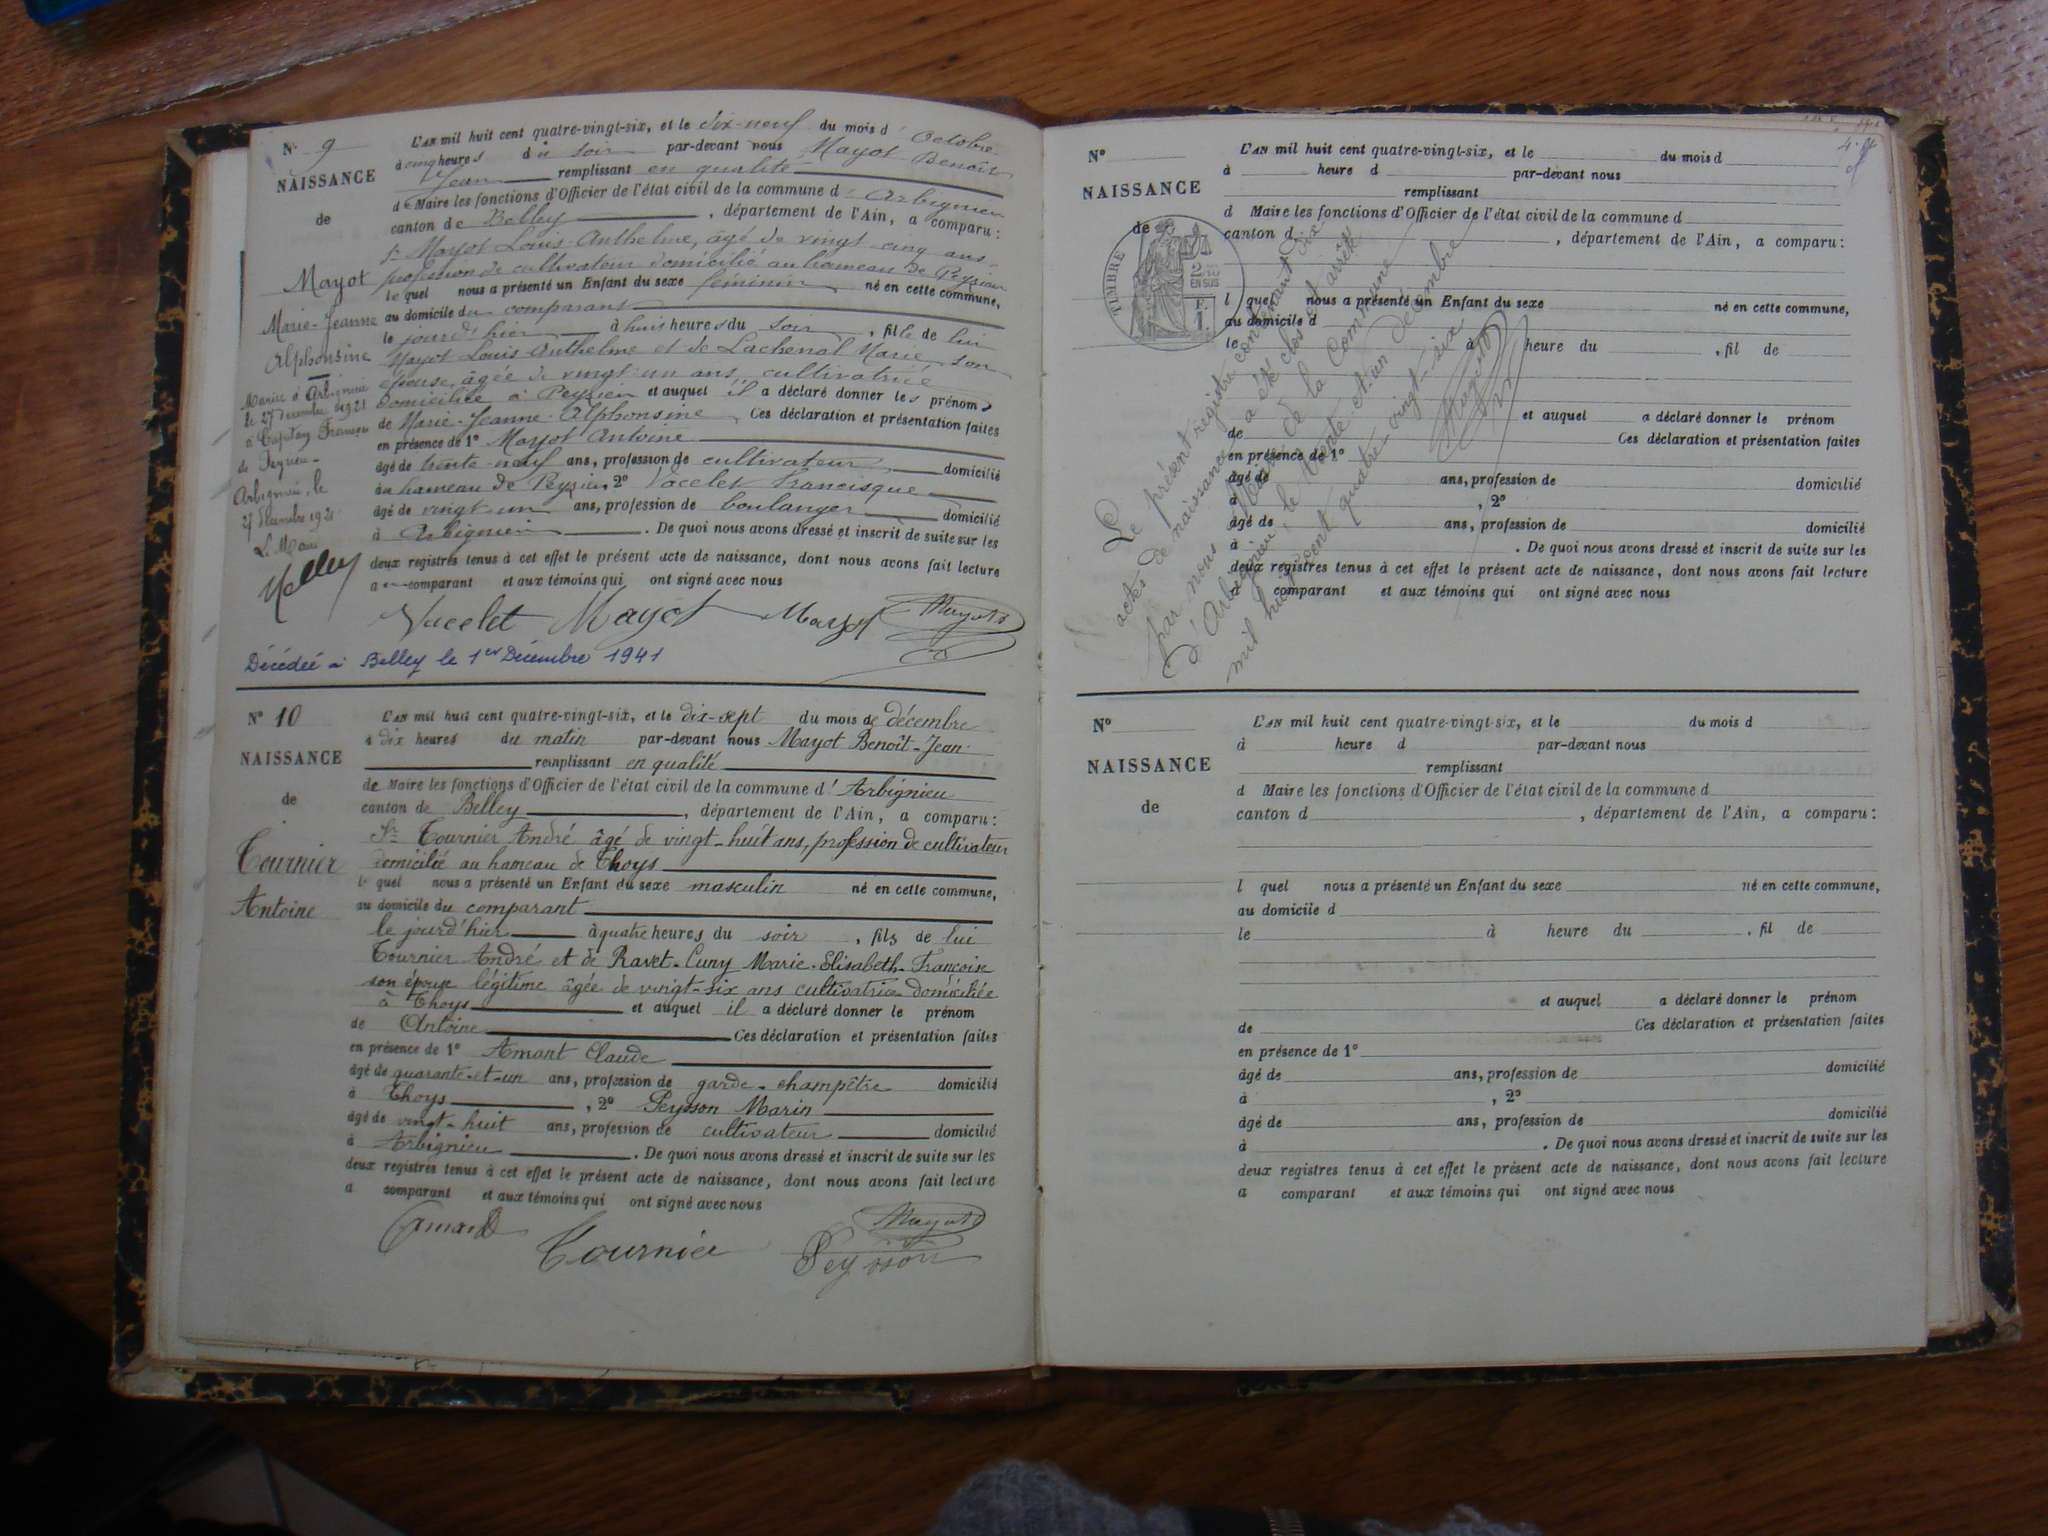 N° 9
NAISSANCE
de
Mayot
Marie-Jeanne
Alphonsine
Marié à Arbignieu
le 27 décembre 1921
à
de Peyzieu
Arbignieu, le
27 décembre 1921
Le Maire
L'AN mil huit cent quatre-vingt-six, et le dix-neuf du mois d'Octobre
à cinq heures du soir par-devant nous Mayot Benoît
Jean remplissant en qualité
de Maire les fonctions d'Officier de l'état civil de la commune d'Arbignieu
canton de Belley, département de l'Ain, a comparu:
Sr Mayot Louis Anthelme, âgé de vingt-cinq ans
profession de cultivateur domicilié au hameau de Peyzieu
lequel nous a présenté un Enfant du sexe féminin né en cette commune,
au domicile du comparant
le jourd'hier à huit heures du soir, fille de lui
Mayot Louis Anthelme et de Lachenal Marie son
épouse, âgée de vingt-un ans, cultivatrice
domiciliée à Peyzieu et auquel il a déclaré donner les prénoms
de Marie-Jeanne-Alphonsine Ces déclaration et présentation faites
en présence de 1° Mayot Antoine
âgé de trente-neuf ans, profession de cultivateur domicilié
au hameau de Peyzieu, 2° Vacelet Francisque
âgé de vingt-un ans, profession de boulanger domicilié
à Arbignieu. De quoi nous avons dressé et inscrit de suite sur les
deux registres tenus à cet effet le présent acte de naissance, dont nous avons fait lecture
au comparant et aux témoins qui ont signé avec nous
Vacelet Mayot Mayot Mayot
Décédée à Belley le 1er Décembre 1941
N° 10
NAISSANCE
de
Tournier
Antoine
L'AN mil huit cent quatre-vingt-six, et le dix-sept du mois de décembre
à dix heures du matin par-devant nous Mayot Benoît-Jean
remplissant en qualité
de Maire les fonctions d'Officier de l'état civil de la commune d'Arbignieu
canton de Belley, département de l'Ain, a comparu:
Sr Tournier André âgé de vingt-huit ans, profession de cultivateur
domicilié au hameau de Thoys
lequel nous a présenté un Enfant du sexe masculin né en cette commune,
au domicile du comparant
le jourd'hier à quatre heures du soir, fils de lui
Tournier André et de Ravet-Cuny Marie-Elisabeth-Françoise
son épouse légitime âgée de vingt-six ans cultivatrice domiciliée
à Thoys et auquel il a déclaré donner le prénom
de Antoine Ces déclaration et présentation faites
en présence de 1° Amant Claude
âgé de quarante-et-un ans, profession de garde-champêtre domicilié
à Thoys, 2° Peysson Marin
âgé de vingt-huit ans, profession de cultivateur domicilié
à Arbignieu. De quoi nous avons dressé et inscrit de suite sur les
deux registres tenus à cet effet le présent acte de naissance, dont nous avons fait lecture
a comparant et aux témoins qui ont signé avec nous
Tournier Mayot
Peysson
N°
NAISSANCE
de
TIMBRE
2/10
EN SUS
L'AN mil huit cent quatre-vingt-six, et le du mois d
à heure d par-devant nous
remplissant
d Maire les fonctions d'Officier de l'état civil de la commune d
canton d , département de l'Ain, a comparu:
l quel nous a présenté un Enfant du sexe né en cette commune,
au domicile d
le à heure du , fil de
et auquel a déclaré donner le prénom
de Ces déclaration et présentation faites
en présence de 1°
âgé de ans, profession de domicilié
à , 2°
âgé de ans, profession de domicilié
à . De quoi nous avons dressé et inscrit de suite sur les
deux registres tenus à cet effet le présent acte de naissance, dont nous avons fait lecture
a comparant et aux témoins qui ont signé avec nous
Le présent registre contenant dix
actes de naissance a été clos et arrêté
par nous Maire de la Commune
d'Arbignieu le trente et un décembre
mil huit cent quatre-vingt-six
N°
NAISSANCE
de
L'AN mil huit cent quatre-vingt-six, et le du mois d
à heure d par-devant nous
remplissant
d Maire les fonctions d'Officier de l'état civil de la commune d
canton d , département de l'Ain, a comparu:
l quel nous a présenté un Enfant du sexe né en cette commune,
au domicile d
le à heure du , fil de
et auquel a déclaré donner le prénom
de Ces déclaration et présentation faites
en présence de 1°
âgé de ans, profession de domicilié
à , 2°
âgé de ans, profession de domicilié
à . De quoi nous avons dressé et inscrit de suite sur les
deux registres tenus à cet effet le présent acte de naissance, dont nous avons fait lecture
a comparant et aux témoins qui ont signé avec nous